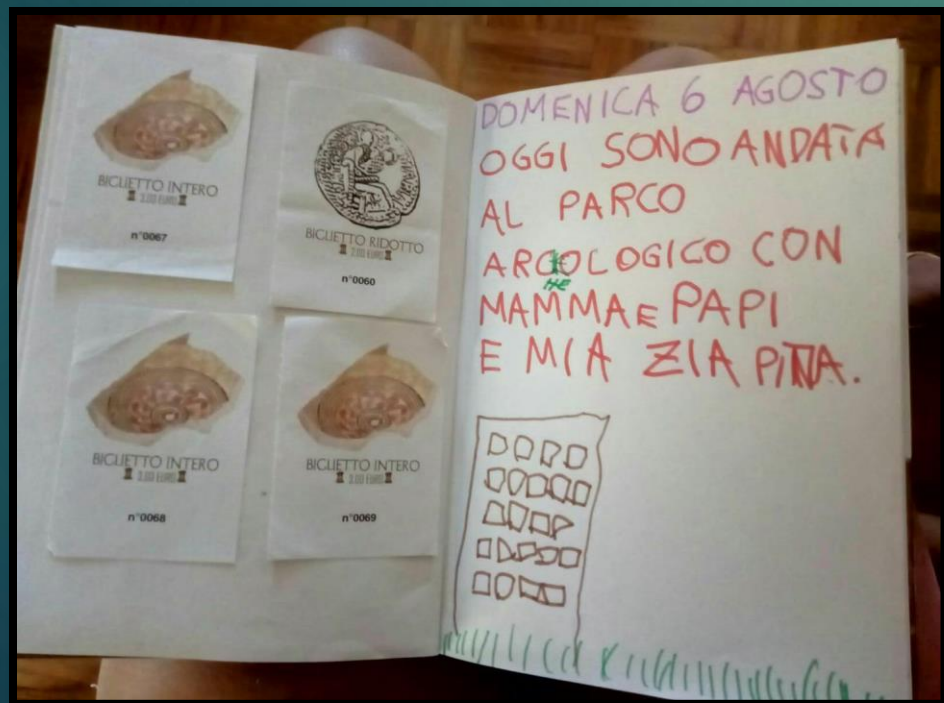 BIGLIETTO INTERO
3.00 EURO
n°0067
BIGLIETTO RIDOTTO
EURO
n°0060
BIGLIETTO INTERO
3.00 EURO
n°0068
BIGLIETTO INTERO
3.00 EURO
n°0069
DOMENICA 6 AGOSTO
OGGI SONO ANDATA
AL PARCO
ARCEOLOGICO CON
HE
MAMMA E PAPI
E MIA ZIA